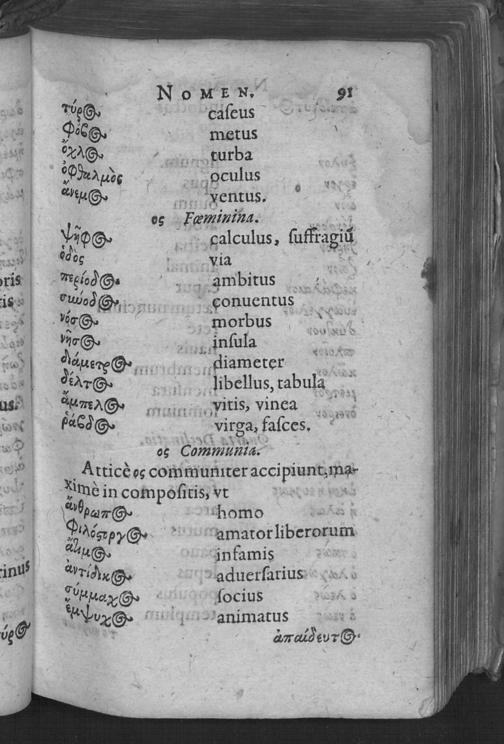 NOMEN. 91
τύρος caſeus
φόβος metus
ὄχλος turba
ὀφθαλμὸς oculus
ἄνεμος ventus.
ος Fœminina.
ψῆφος calculus, ſuffragiũ
ὁδὸς via
περίοδος ambitus
σύνοδος conuentus
νόσος morbus
νῆσος inſula
διάμετρος diameter
δέλτος libellus, tabula
ἄμπελος vitis, vinea
ῥάβδος virga, faſces.
ος Communia.
Atticè ος communiter accipiunt, ma-
ximè in compoſitis, vt
ἄνθρωπος homo
φιλόστοργος amator liberorum
ἄτιμος infamis
ἀντίδικος aduerſarius
σύμμαχος ſocius
ἔμψυχος animatus
ἀπαίδευτος